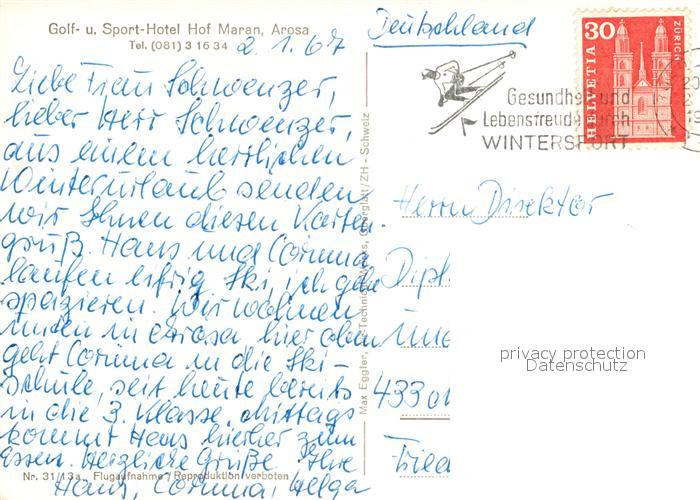 Golf- u. Sport-Hotel Hof Maran, Arosa
Tel. (081) 3 16 34
2. 1. 67
Liebe Frau Schwenzer,
lieber Herr Schwenzer,
aus einem herrlichen
Winterurlaub senden
wir Ihnen diesen Karten-
gruß. Hans und Corinna
laufen eifrig Ski, ich gehe
spazieren. Wir wohnen
unten in Arosa hier oben
geht Corinna in die Ski-
schule, seit heute bereits
in die 3. Klasse. Mittags
kommt Hans hierher zum
Essen. Herzliche Grüße Ihre
Hans, Corinna, Helga
Nr. 31/13a, Flugaufnahme / Reproduktion verboten
Max Eggler, Schweiz
Deutschland
Gesundheit und
Lebensfreude durch
WINTERSPORT
30
HELVETIA
ZÜRICH
Herrn Direktor
Dipl
433 
privacy protection
Datenschutz